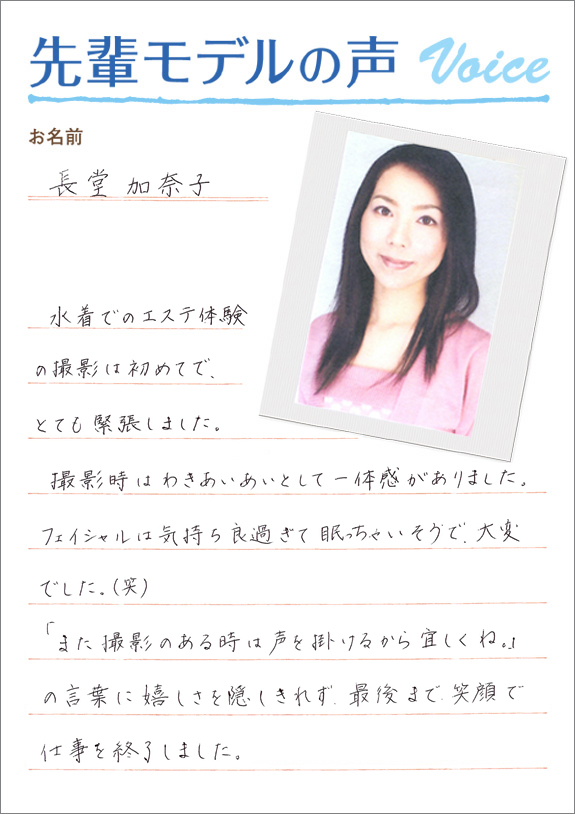 先輩モデルの声 Voice
お名前
長堂 加奈子
水着でのエステ体験
の撮影は初めてで、
とても緊張しました。
撮影時はわきあいあいとして一体感がありました。
フェイシャルは気持ち良過ぎて眠っちゃいそうで、大変
でした。(笑)
「また撮影のある時は声を掛けるから宜しくね。」
の言葉に嬉しさを隠しきれず、最後まで、笑顔で
仕事を終了しました。